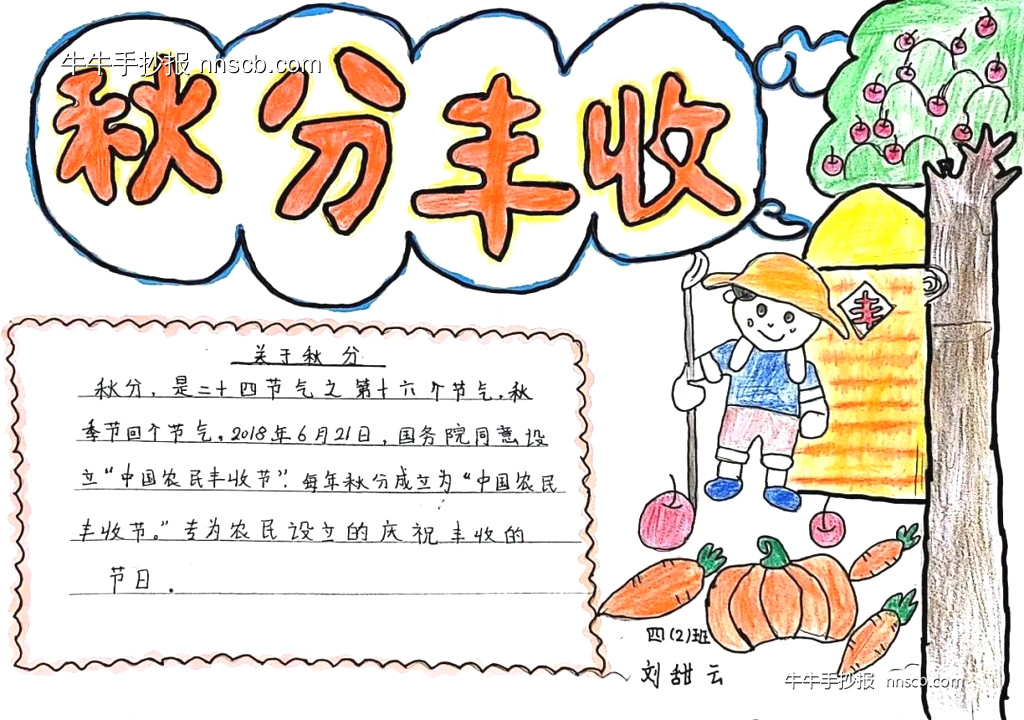 牛牛手抄报 nnscb.com
秋分丰收
关于秋分
秋分,是二十四节气之第十六个节气,秋
季节回个节气。2018年6月21日,国务院同意设
立“中国农民丰收节”.每年秋分成立为“中国农民
丰收节。”专为农民设立的庆祝丰收的
节日.
丰
四(2)班
刘甜云
牛牛手抄报 nnscb.com